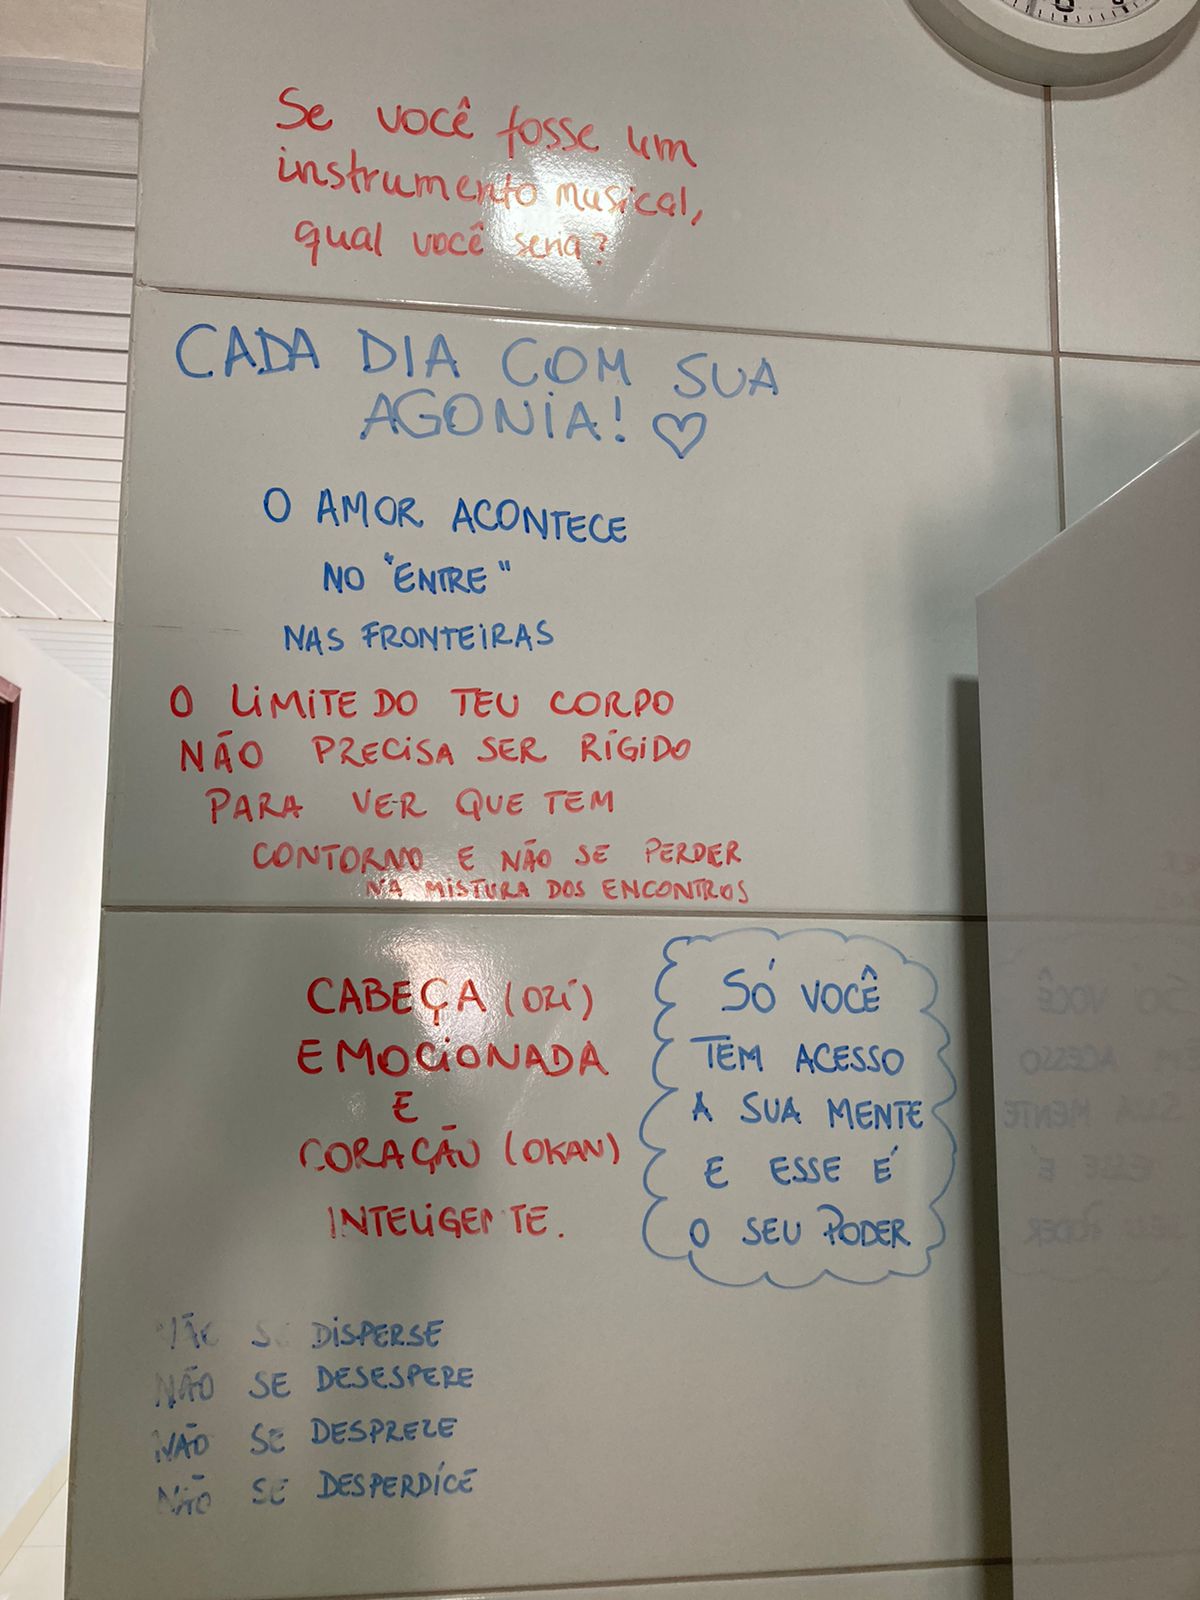 Se você fosse um
instrumento musical,
qual você seria?
CADA DIA COM SUA
AGONIA! ♡
O AMOR ACONTECE
NO "ENTRE"
NAS FRONTEIRAS
O LIMITE DO TEU CORPO
NÃO PRECISA SER RÍGIDO
PARA VER QUE TEM
CONTORNO E NÃO SE PERDER
NA MISTURA DOS ENCONTROS
CABEÇA (ORÍ)
EMOCIONADA
E
CORAÇÃO (OKAN)
INTELIGENTE.
SÓ VOCÊ
TEM ACESSO
A SUA MENTE
E ESSE É
O SEU PODER
NÃO SE DISPERSE
NÃO SE DESESPERE
NÃO SE DESPREZE
NÃO SE DESPERDÍCE